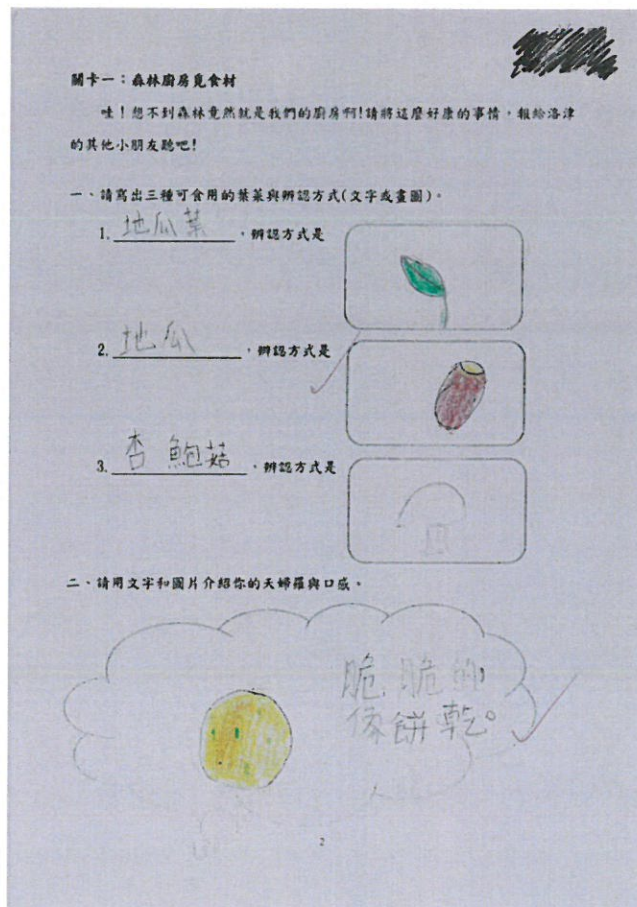 關卡一：森林廚房覓食材
哇！想不到森林竟然就是我們的廚房啊!請將這麼好康的事情，報給洛津
的其他小朋友聽吧!
一、請寫出三種可食用的葉菜與辨認方式(文字或畫圖)。
1. 地瓜葉，辨認方式是
2. 地瓜，辨認方式是
3. 杏鮑菇，辨認方式是
二、請用文字和圖片介紹你的天婦羅與口感。
脆脆的
像餅乾。
2